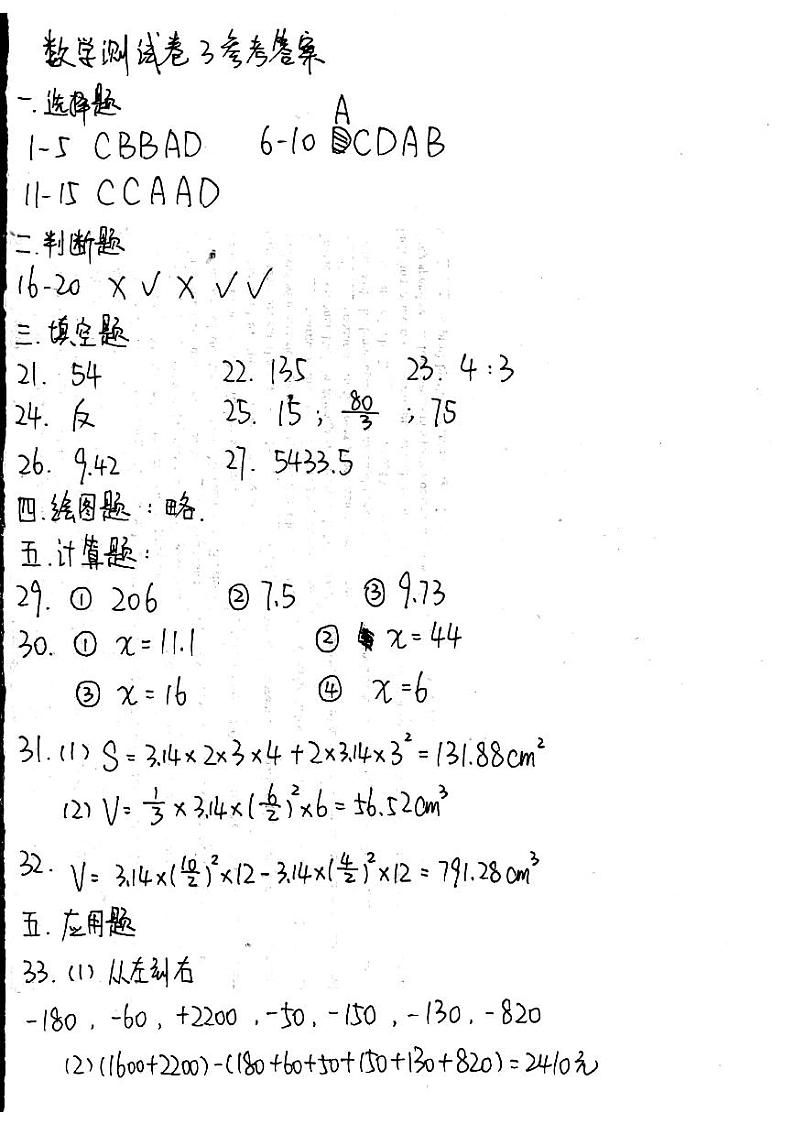 数学测试卷3参考答案
一.选择题
1-5 CBBAD 6-10 ACDAB
11-15 CCAAD
二.判断题
16-20 × √ × √ √
三.填空题
21. 54 22. 135 23. 4:3
24. 反 25. 15; 80/3 ; 75
26. 9.42 27. 5433.5
四.绘图题:略.
五.计算题:
29. ① 206 ② 7.5 ③ 9.73
30. ① x=11.1 ② x=44
③ x=16 ④ x=6
31.(1) S=3.14×2×3×4+2×3.14×3²=131.88cm²
(2) V=1/3×3.14×(6/2)²×6=56.52cm³
32. V=3.14×(10/2)²×12-3.14×(4/2)²×12=791.28cm³
五.应用题
33.(1)从左到右
-180, -60, +2200, -50, -150, -130, -820
(2)(1600+2200)-(180+60+50+150+130+820)=2410元